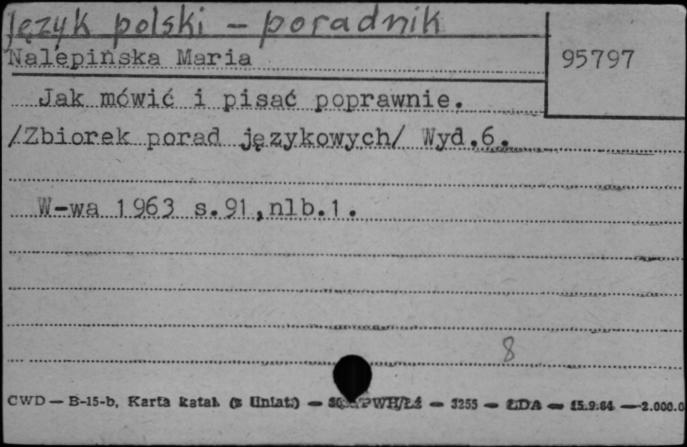 język polski - poradnik
Nalepińska Maria
95797
Jak mówić i pisać poprawnie.
/Zbiorek porad językowych/ Wyd.6.
W-wa 1963 s.91,nlb.1.
8
CWD — B-15-b, Karta katal. — 3255 — ŁDA — 15.9.64 — 2.000.0